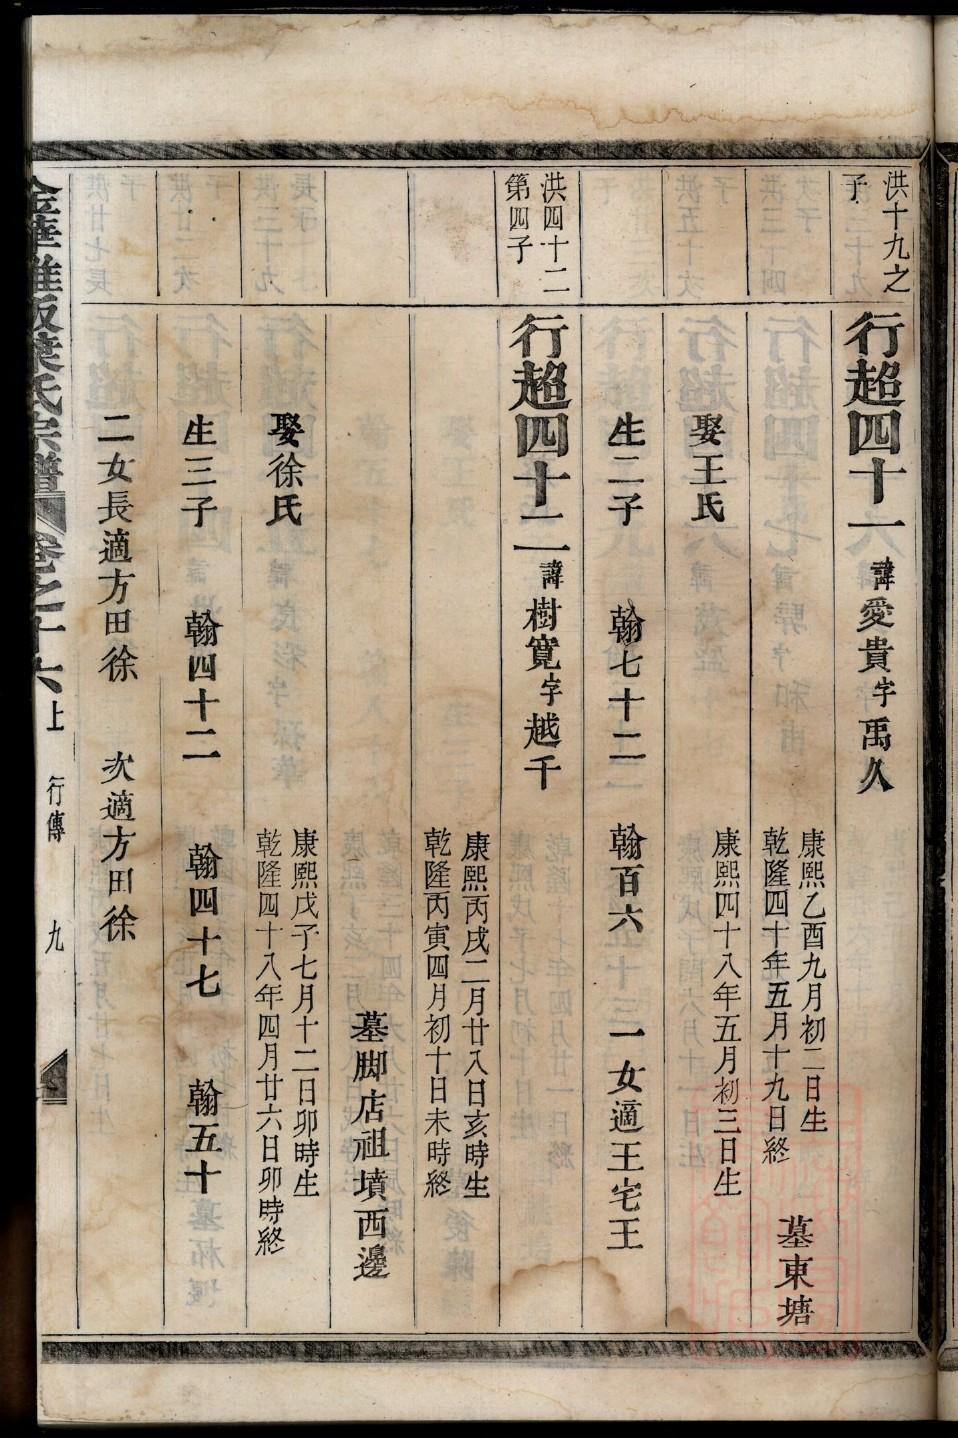 洪十九之
子
行超四十一諱愛貴字禹久
康熙乙酉九月初二日生
乾隆四十年五月十九日終
墓東塘
娶王氏
康熙四十八年五月初三日生
生二子 翰七十二 翰百六 一女適王宅王
洪四十二
第四子
行超四十二諱樹寬字越千
康熙丙戌二月廿八日亥時生
乾隆丙寅四月初十日未時終
墓脚店祖墳西邊
娶徐氏
康熙戊子七月十二日卯時生
乾隆四十八年四月廿六日卯時終
生三子 翰四十二 翰四十七 翰五十
二女長適方田徐 次適方田徐
葉氏宗譜 卷之十六上 行傳 九